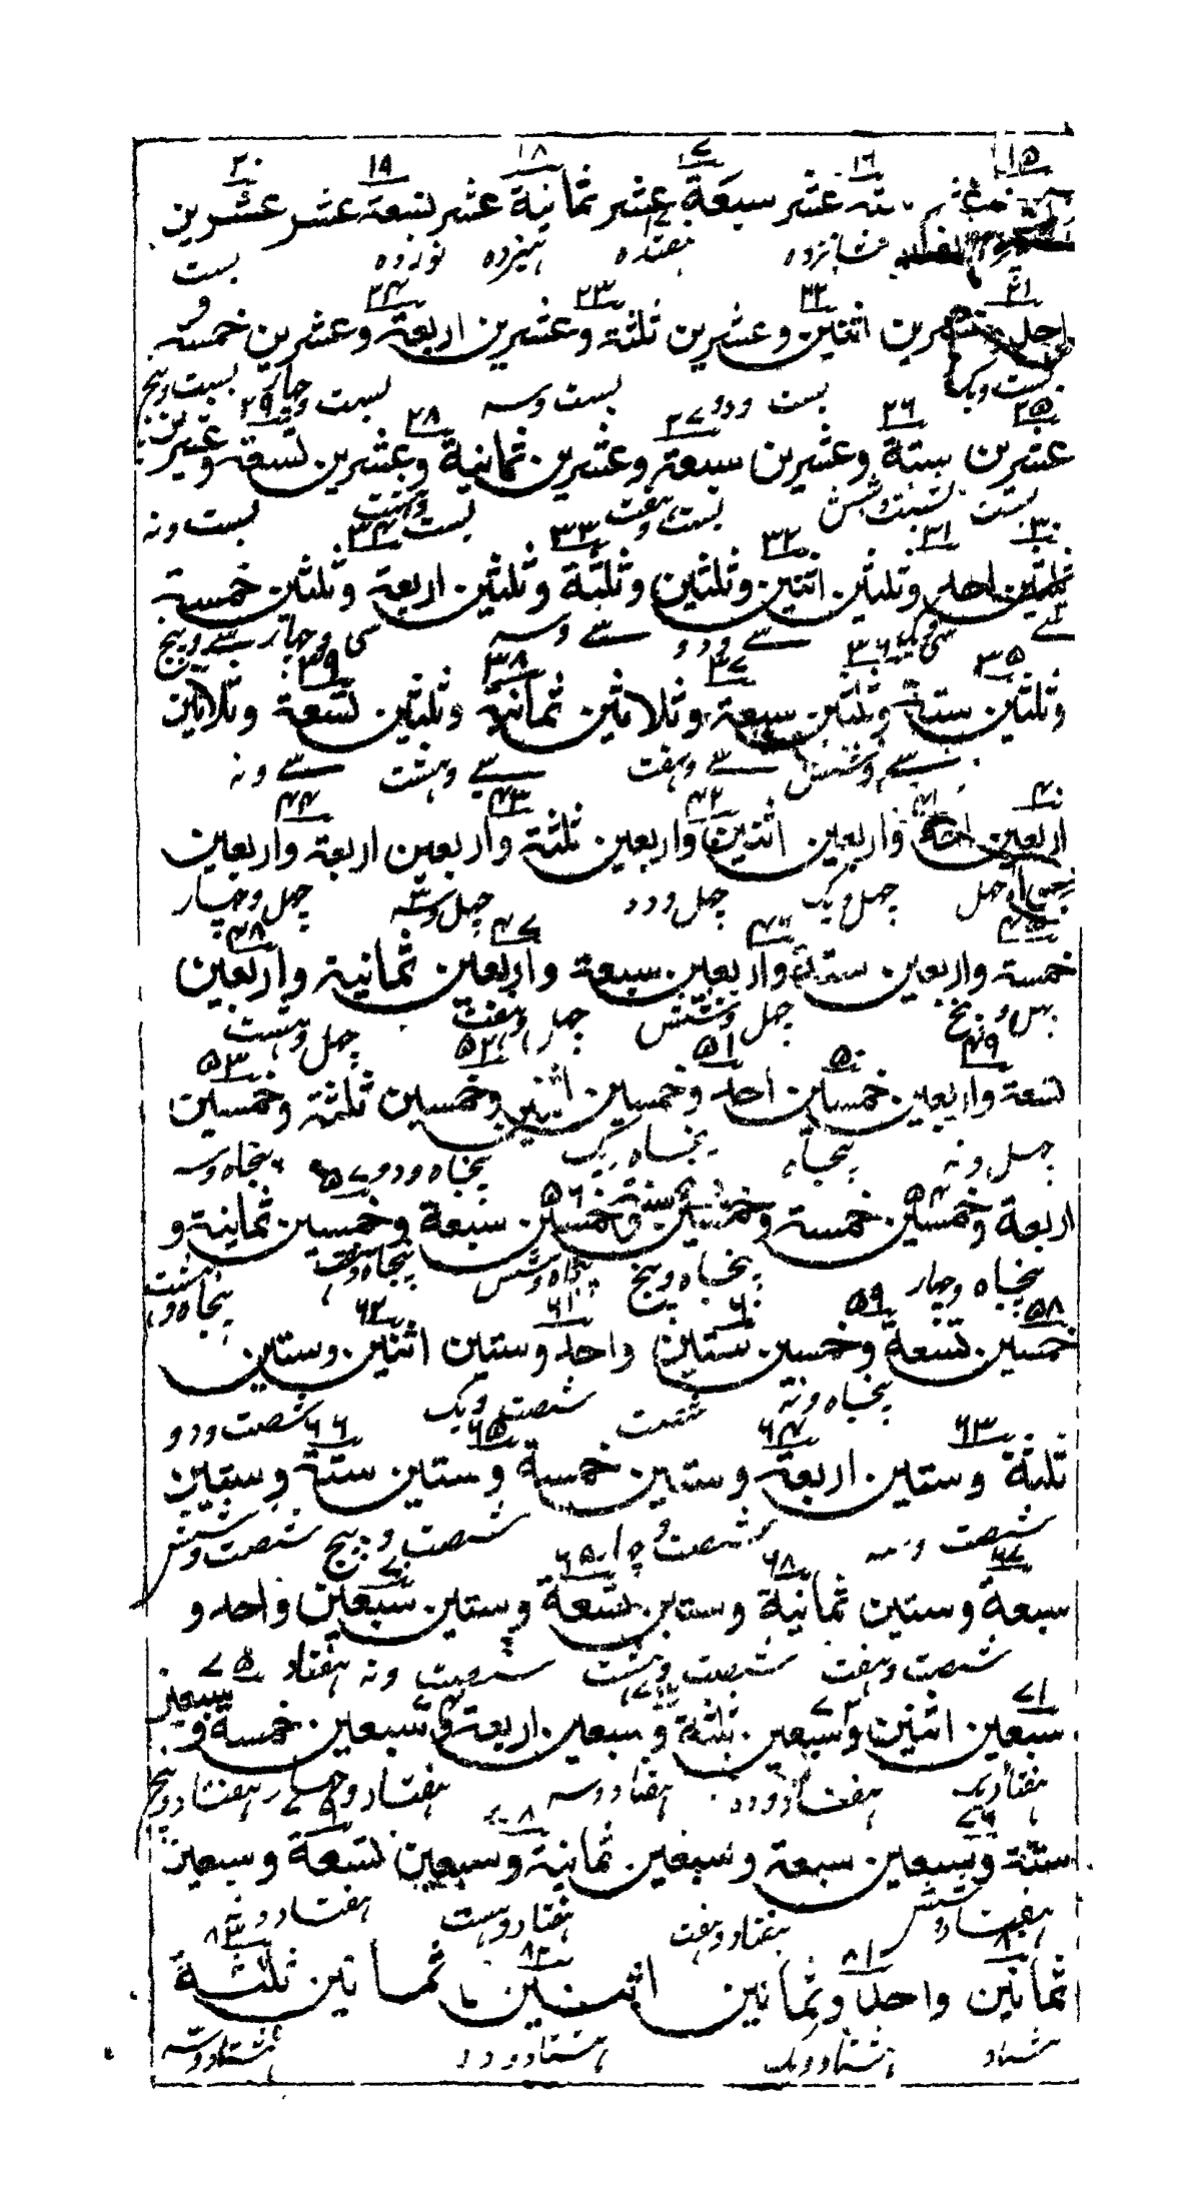 ۱۵ ۱۶ ۱۷ ۱۸ ۱۹ ۲۰
عشر ستة عشر سبعة عشر ثمانية عشر تسعة عشر عشرين
شانزده هفتده هیزده نوزده بست
۲۱ ۲۲ ۲۳ ۲۴
احد وعشرين اثنين وعشرين ثلثة وعشرين اربعة وعشرين خمسة و
بست ویک بست ودو بست وسه بست وچار بست وپنج
۲۵ ۲۶ ۲۷ ۲۸ ۲۹
عشرين ستة وعشرين سبعة وعشرين ثمانية وعشرين تسعة وعشرين
بست وشش بست وهفت بست وهشت بست ونه
۳۰ ۳۱ ۳۲ ۳۳ ۳۴
ثلثين احد وثلثين اثنين وثلثين وثلثة وثلثين اربعة وثلثين خمسة
سے سی ویک سے ودو سے وسه سی وچار سے وپنج
۳۵ ۳۶ ۳۷ ۳۸ ۳۹
وثلثين ستة وثلثين سبعة وثلاثين ثمانية وثلثين تسعة وثلاثين
سے وشش سے وهفت سے وهشت سے ونه
۴۰ ۴۱ ۴۲ ۴۳ ۴۴
اربعين احد واربعين اثنين واربعين ثلثة واربعين اربعة واربعين
چهل چهل ویک چهل ودو چهل وسه چهل وچهار
۴۵ ۴۶ ۴۷ ۴۸
خمسة واربعين ستة واربعين سبعة واربعين ثمانية واربعين
چهل وپنج چهل وشش چهل وهفت چهل وهشت
۴۹ ۵۰ ۵۱ ۵۲ ۵۳
تسعة واربعين خمسين احد وخمسين اثنين وخمسين ثلثة وخمسين
چهل ونه پنجاه پنجاه یک پنجاه ودو پنجاه وسه
۵۴ ۵۶ ۵۷
اربعة وخمسين خمسة وخمسين ستة وخمسين سبعة وخمسين ثمانية و
پنجاه وچهار پنجاه وپنج پنجاه وشش پنجاه وهفت پنجاه وهشت
۵۸ ۵۹ ۶۰ ۶۱ ۶۲
خمسين تسعة وخمسين ستين واحد وستين اثنين وستين
پنجاه ونه شصت شصت ویک شصت ودو
۶۳ ۶۴ ۶۵ ۶۶
ثلثة وستين اربعة وستين خمسة وستين ستة وستين
شصت وسه شصت وچار شصت وپنج شصت وشش
۶۷ ۶۸ ۶۵ ۷۰
سبعة وستين ثمانية وستين تسعة وستين سبعين واحد و
شصت وهفت شصت وهشت شصت ونه هفتاد
۷۱ ۷۲ ۷۳ ۷۴ ۷۵
سبعين اثنين وسبعين ثلثة وسبعين اربعة وسبعين خمسة و سبعين
هفتاد ویک هفتاد ودو هفتاد وسه هفتاد وچهار هفتاد وپنج
۷۶ ۷۸
ستة وسبعين سبعة وسبعين ثمانية وسبعين تسعة وسبعين
هفتاد وشش هفتاد وهفت هفتاد وهشت هفتاد ونه
۸۰ ۸۱ ۸۲ ۸۳
ثمانين واحد وثمانين اثنين ثمانين ثلثة
هشتاد هشتاد ویک هشتاد ودو هشتاد وسه